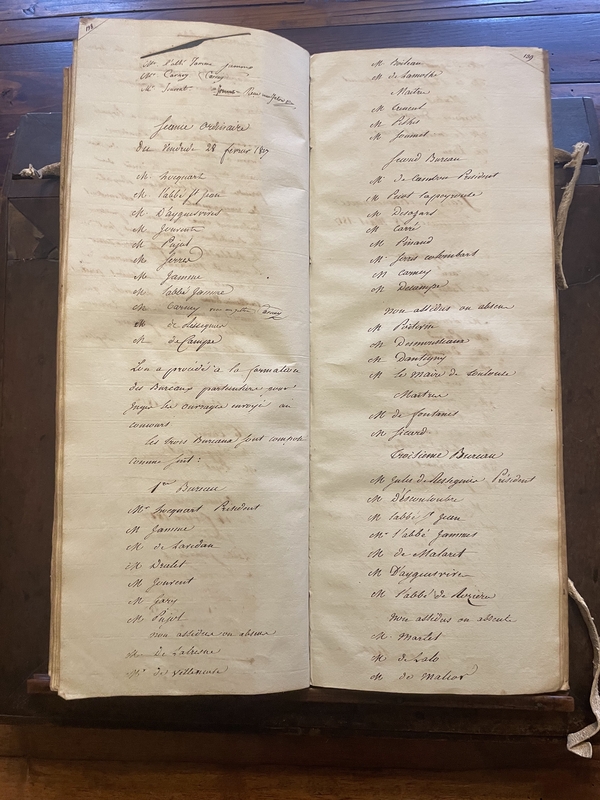 138
Mr l'abbé Jamme jamme
Mr Carney Carney
Mr Jouvent
Séance ordinaire
du vendredi 28 février 1817
M. hocquart
M l'abbé St jean
M D'ayguesvives
M Jouvent
M Pujol
M Serres
M Jamme
M l'abbé Jamme
M Carney
M de Resseguier
M de Campe
L'on a procédé à la formation
des Bureaux particuliers pour
juger les ouvrages envoyés au
concours
les trois Bureaux sont composés
comme suit :
1er Bureau
Mr hocquart Président
M Jamme
M de Lavedan
M Drulet
M Jouvent
M Gary
M Pujol
non assidus ou absens
M de Latresne
Mr de Villeneuve
139
M Boileau
M de Lamothe
Maitres
M Clement
M
M Soumet
Second Bureau
M de Cambon Président
M Picot Lapeyrouse
M Desazars
M Carré
M Pinaud
M Serres colombars
M Carney
M Decampe
non assidus ou absens
M Poitevin
M Desmousseaux
M Dantigny
M le Maire de Toulouse
Maitres
M de fontanes
M Sicard
troisieme Bureau
M Jules de Resseguier Président
M Descouloubre
M l'abbé St jean
Mr l'abbé Jammes
M de Malaret
M D'ayguesvives
M l'abbé de Rozieres
non assidus ou absents
M Martet
M de Lalo
M de